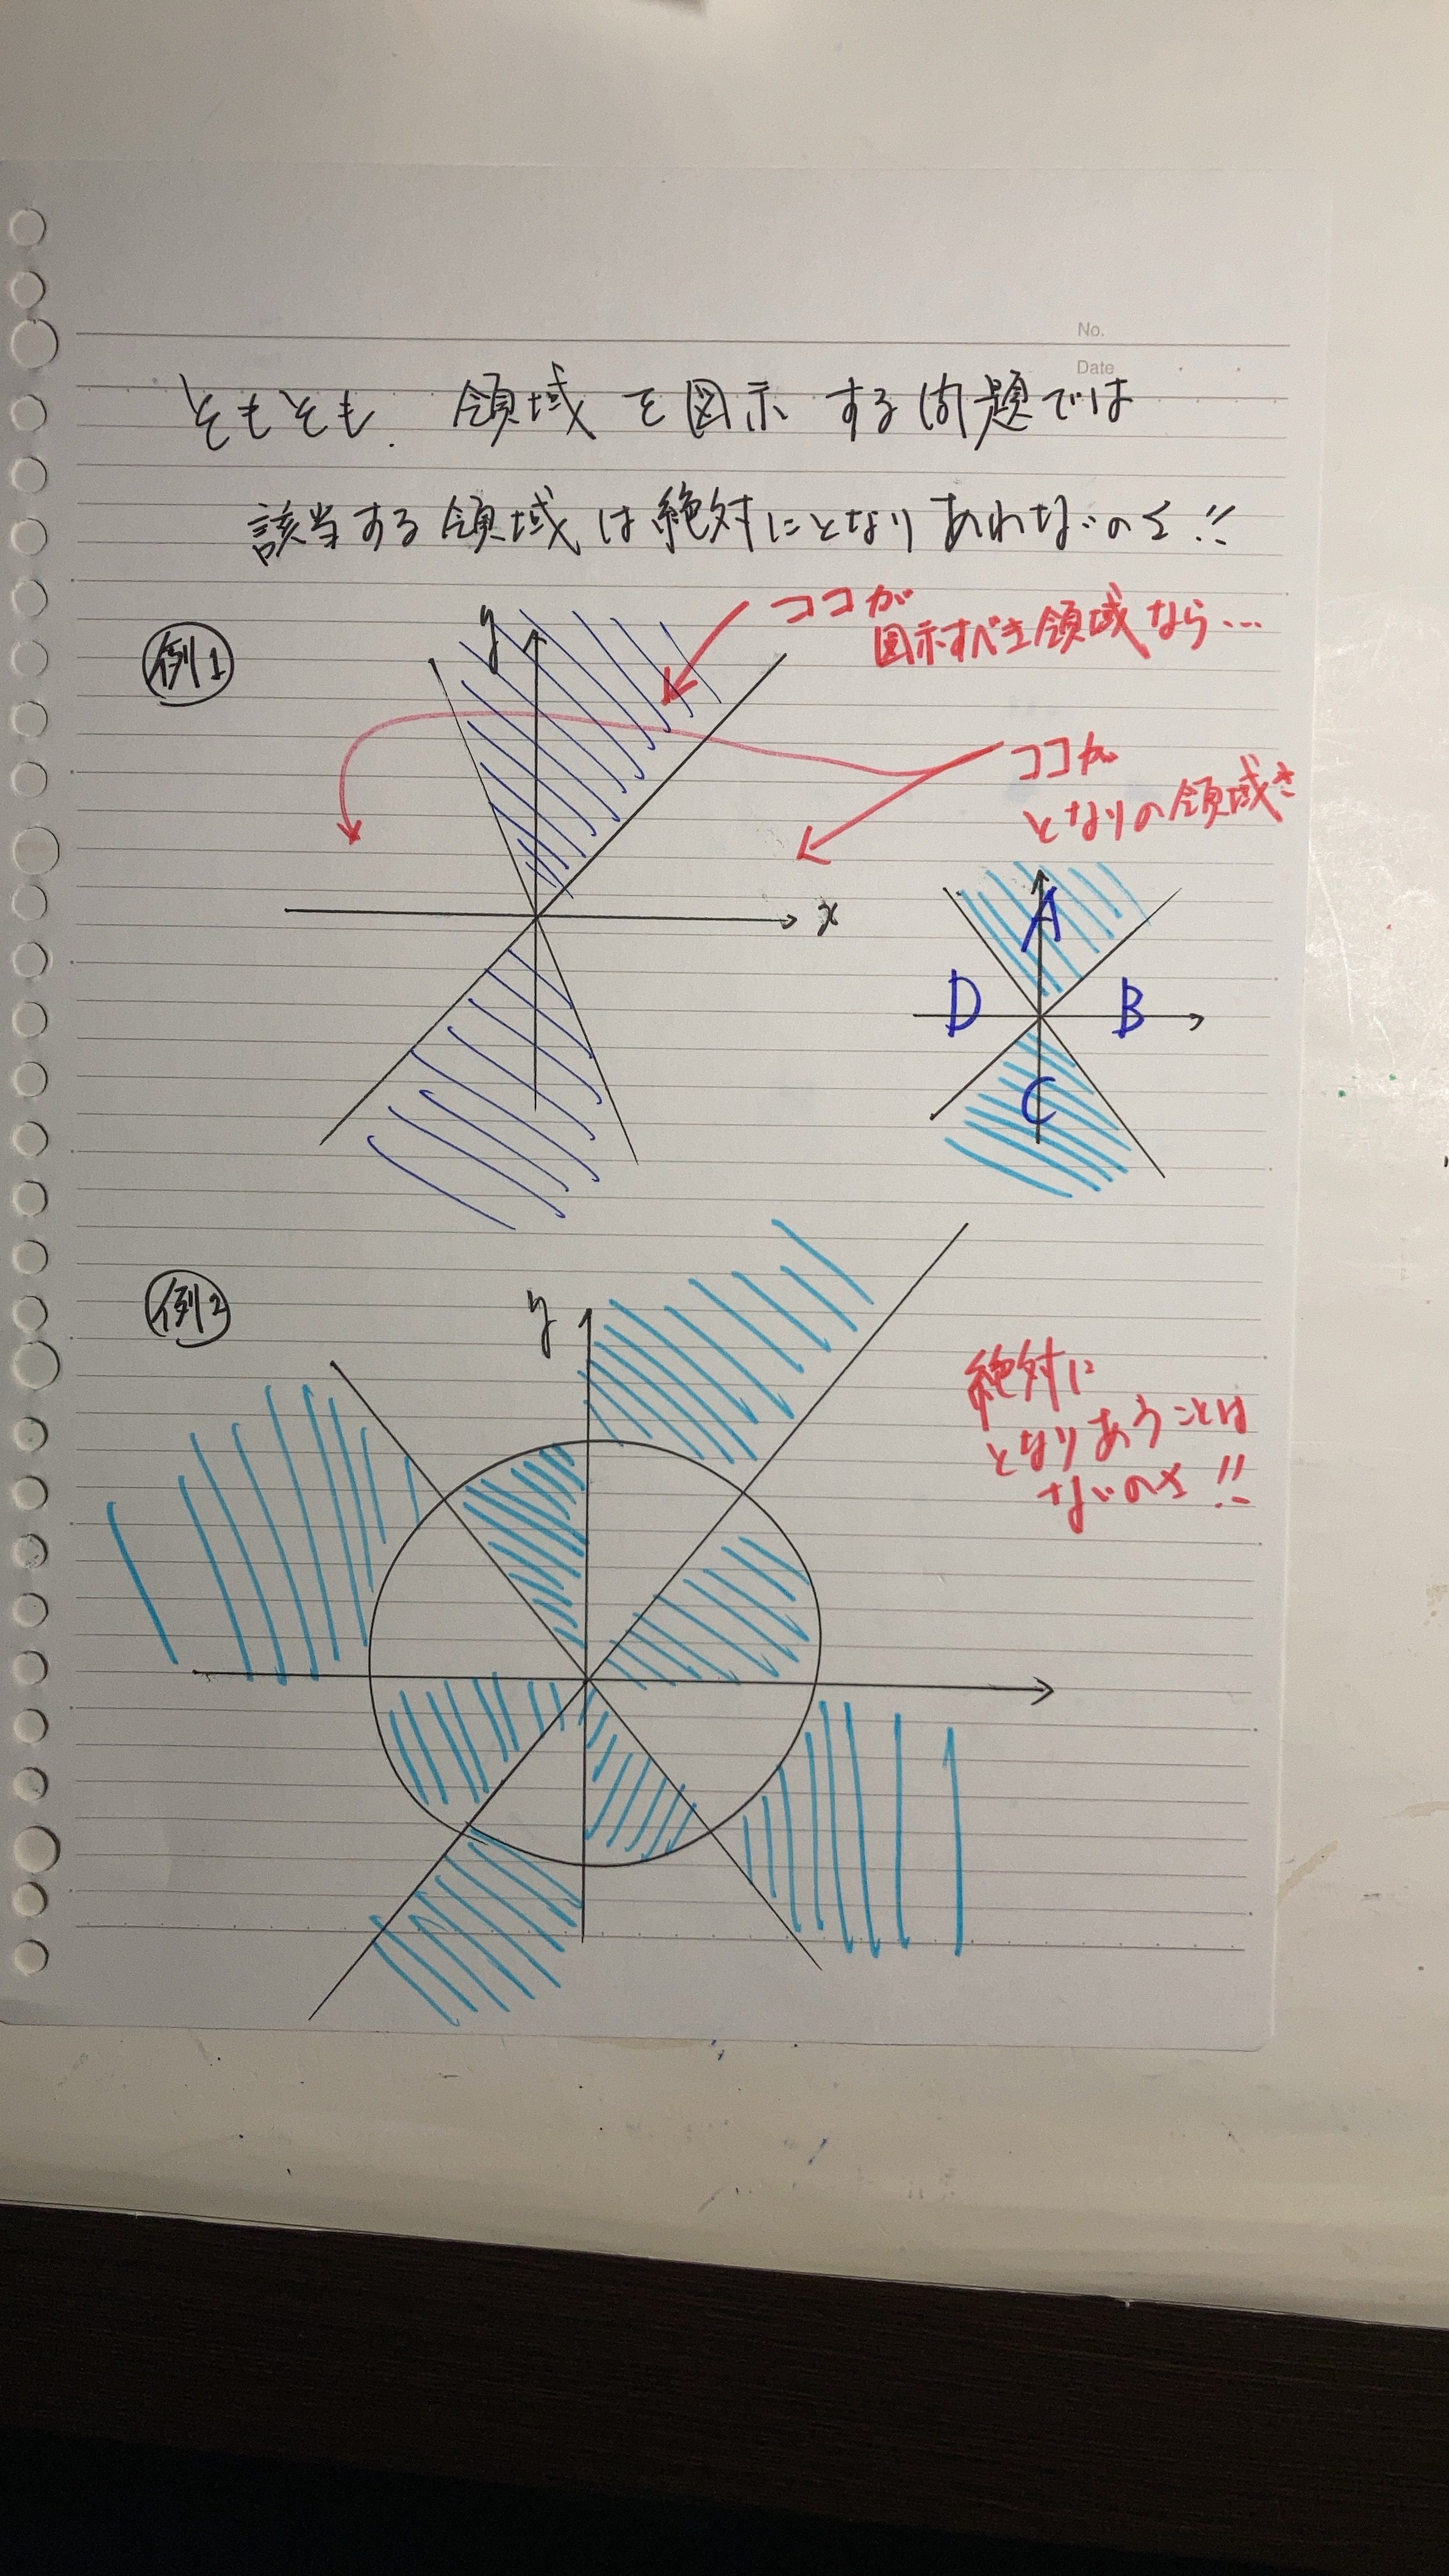 No.
Date
そもそも. 領域を図示する問題では
該当する領域は絶対にとなりあわないのさ!!
例1
y
x
ココが
図示すべき領域なら…
ココが
となりの領域さ
A
D
B
C
例2
y
絶対に
となりあうことは
ないのさ!!